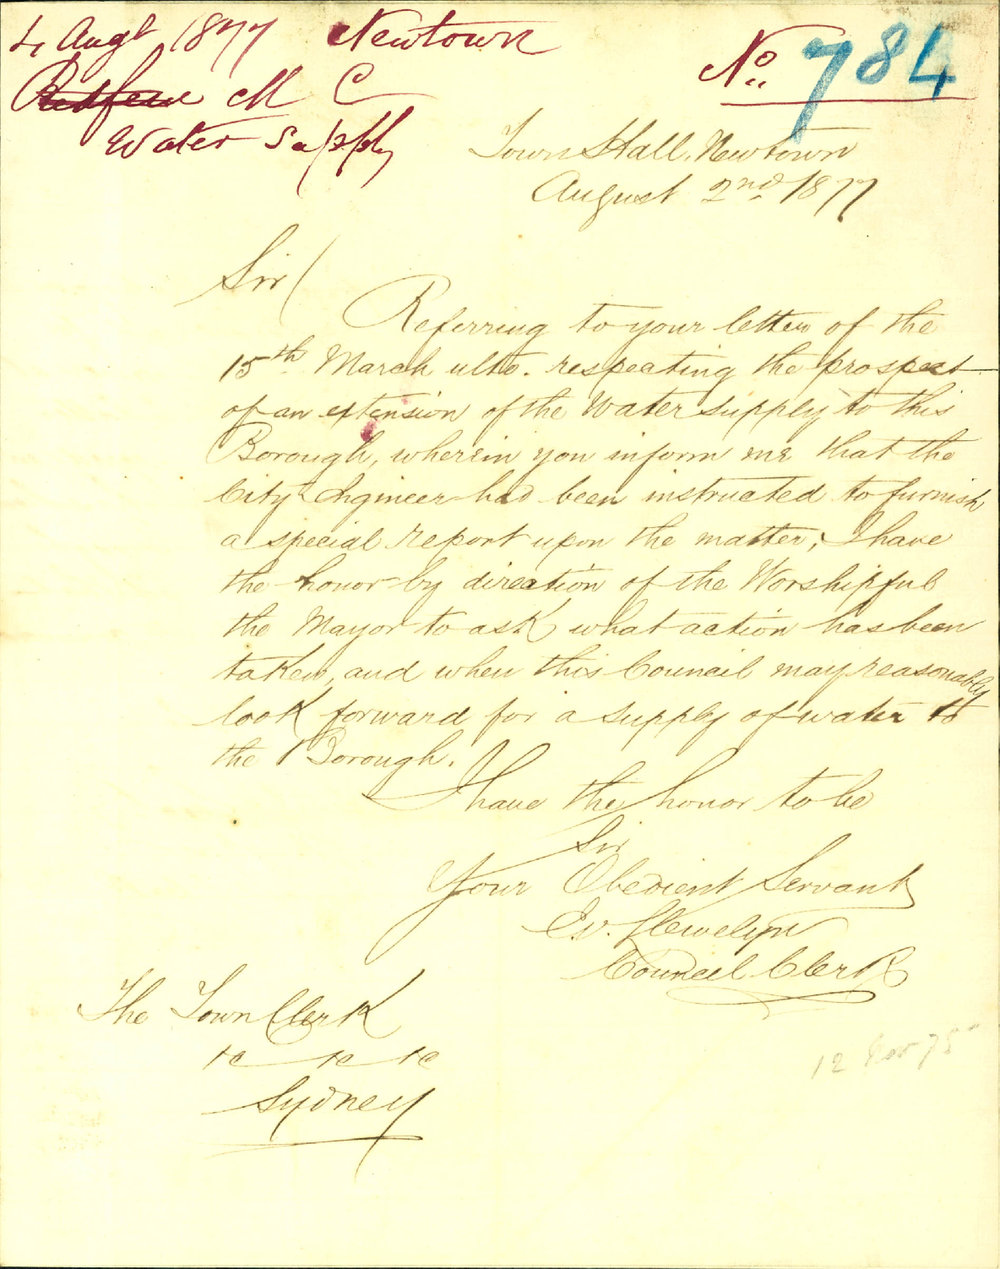 4 Augt 1877 Newtown
Redfern M C
Water Supply
No. 784
Town Hall, Newtown
August 2nd 1877
Sir
Referring to your letter of the
15th March ulto. respecting the prospect
of an extension of the Water supply to this
Borough, wherein you inform me that the
City Engineer had been instructed to furnish
a special report upon the matter; I have
the honor by direction of the Worshipful
the Mayor to ask what action has been
taken, and when this Council may reasonably
look forward for a supply of water to
the Borough.
I have the honor to be
Sir
Your Obedient Servant
Ev. Llewelyn
Council Clerk
The Town Clerk
&c &c &c
Sydney
12 Nov 75